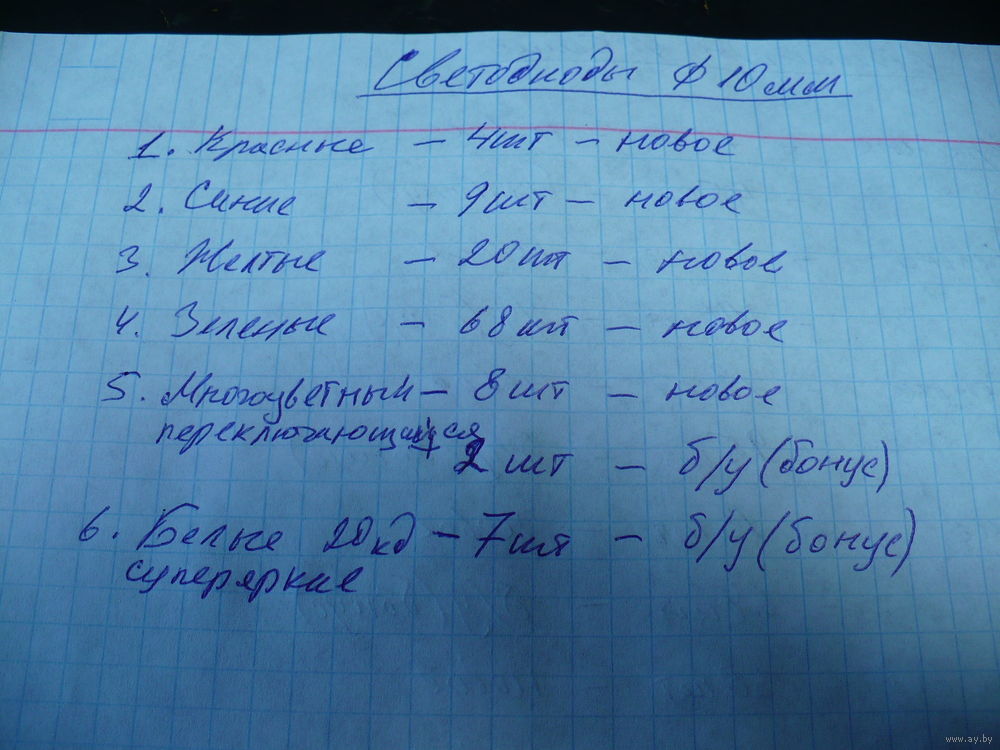 Светодиоды ф 10мм
1. Красные - 4шт - новое
2. Синие - 9шт - новое
3. Желтые - 20шт - новое
4. Зеленые - 68шт - новое
5. Многоцветный - 8шт - новое
переключающийся
2 шт - б/у (бонус)
6. Белые 20кд - 7шт - б/у (бонус)
суперяркие
www.ay.by